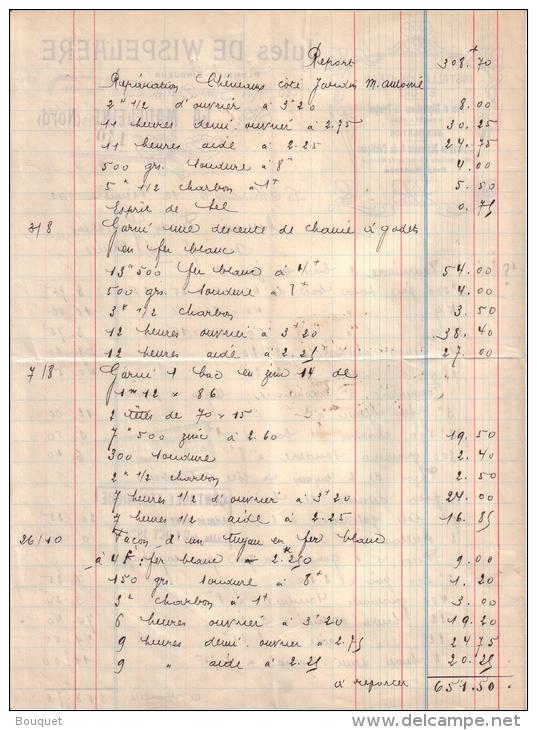 Report 308.70
Réparation Chéneaux côté Jardin M. Antoine
2 h 1/2 d'ouvrier à 3 f 20 8.00
11 heures demi-ouvrier à 2.75 30.25
11 heures aide à 2.25 24.75
500 grs. soudure à 8 f 4.00
5 k 1/2 charbon à 1 f 5.50
Esprit de sel 0.75
3/8 Garni une descente de chaine à godets
en fer blanc
13 k 500 fer blanc à 4 f 54.00
500 grs. soudure à 4.00
3 k 1/2 charbon 3.50
12 heures ouvrier à 3 f 20 38.40
12 heures aide à 2.25 27.00
7/8 Garni 1 bac en zinc 14 de
1 m 12 x 86
2 têtes de 70 x 15
7 k 500 zinc à 2.60 19.50
300 soudure 2.40
2 k 1/2 charbon 2.50
7 heures 1/2 d'ouvrier à 3 f 20 24.00
7 heures 1/2 aide à 2.25 16.85
26/10 Façon d'un tuyau en fer blanc
à 4 f: fer blanc 9.00
150 grs. soudure à 8 f 1.20
3 k charbon à 1 f 3.00
6 heures ouvrier à 3 f 20 19.20
9 heures demi-ouvrier à 2.75 24.75
9 " aide à 2.25 20.25
à reporter 651.50
Bouquet www.delcampe.net